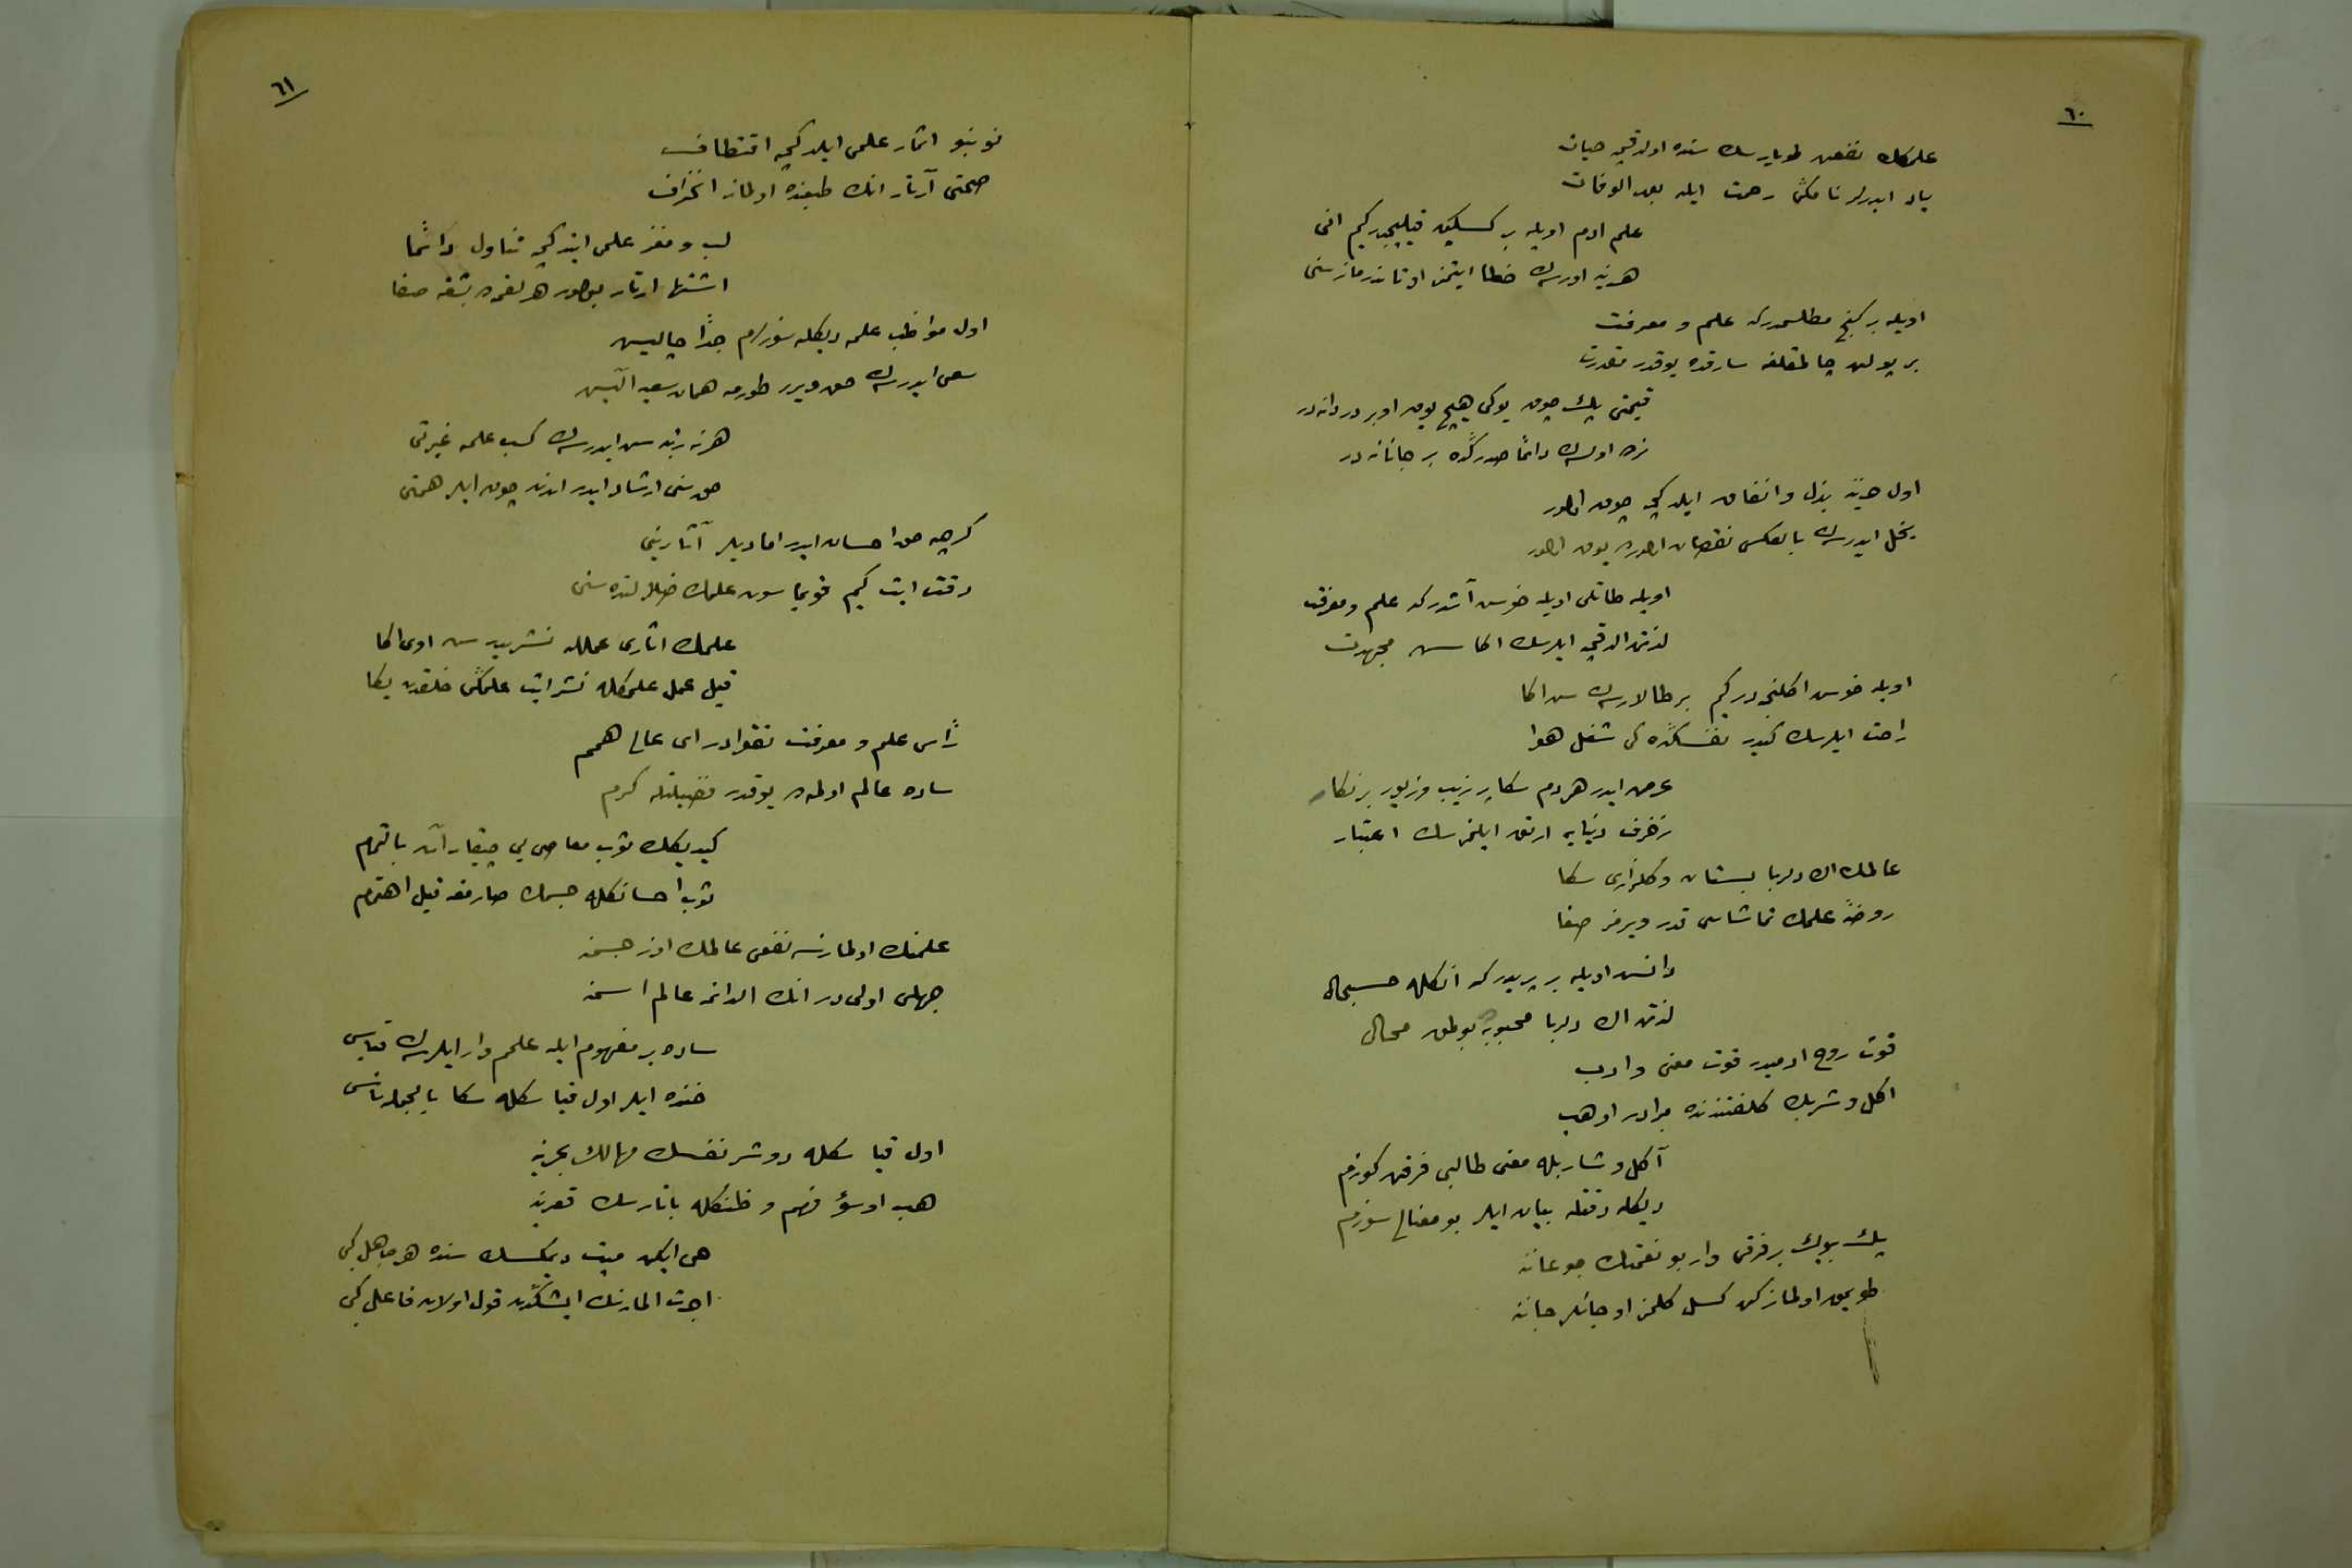 ٦٠
علمكك نفعن طويارسك سنده اولدقجه حيات
ياد ايدرلر نامكى رحمت ايله بعد الوفات
علم ادم اويله بر كسكين قيليجدر كيم انى
هرنه اورسه ك خطا ايتمز اوتاندرماز سنى
اويله بر كنج مطلسمدر كه علم و معرفت
بر پولن چالمقلغه سارقده يوقدر مقدرت
قيمتى پك چوق يوكى هيچ يوق او بر دردانه در
نره اولسه ك دائما صدركده بر جانانه در
اول خزينه بذل و انفاق ايلدكجه چوق اولور
بخل ايدرسه ك بالعكس نقصان اولوره يوق اولور
اويله طاتلى اويله خوش آشدر كه علم و معرفت
لذتن الدقجه ايلرسك اكا سن مجهدت
اويله خوش اكلنجه در كيم بر طالارسه ك سن اكا
راحت ايلرسك كيدر نفسكده كى شغل هوا
عرض ايدر هردم سكا بر زيب و زيور بر نكار
زخرف دنيايه ارتق ايلمزسك اعتبار
عالمك اك دلربا بستان و كلزارى سكا
روضهٔ علمك تماشاسى قدر ويرمز صفا
دانش اويله بر پريدر كه انكله حسبحال
لذتن اك دلربا محبوبه بولمق محال
قوت روح ادميدر قوت معنى و ادب
اكل و شربك كلفتندنده مبرادر او هب
آكل و شاربله معنى طالبى فرقن كوزم
ديكله دقتله بيان ايلر بو معنالى سوزم
پك بيوك بر فرقى وار بو نعمتك جوعاننه
طويمق اولماز كن كسل كلمز او جانلر جاننه
٦١
نو بنو اثمار علمى ايلدكجه اقتطاف
صحتى آرتار انك طبعنده اولماز انحراف
لب و مغز علمى ايتدكجه تناول دائما
اشتها ارتار بولور هر لقمه ده بشقه صفا
اول مواظب علمه ديكله سوزلرم جدا چاليش
سعى ايدرسه ك حق ويرر طورمه همان سعيه آليش
هرنه رتبه سن ايدرسه ك كسب علمه غيرتى
حق سنى ارشاد ايدر اندن چوق ايلر همتى
كرچه حق احسان ايدر اما ديلر آثارينى
دقت ايت كيم قويماسون علمك ضلالتده سنى
علمك اثارى عمللله نشريدر سن اوى اكا
قيل عمل علمكله نشر ايت علمكى خلقدن يكا
رأس علم و معرفت تقوادر اى عالى همم
ساده عالم اولمه ده يوقدر فضيلتله كرم
كيديكك ثوب معاصى يى چيقار آت بالتمام
ثوب احسانكله جسمك صارمغه قيل اهتمام
علمنك اولمازسه نفعى عالمك اوز جسمنه
جهلى اولى در انك الدانمه عالم اسمنه
ساده بر مفهوم ايله علمم وار ايلرسه ك قياس
خنده ايلر اول قياسكله سكا بالجمله ناس
اول قياسكله دوشر نفسك مهالك بحرينه
هب او سوء فهم و ظنكله باتارسك قعرينه
حى ايكن ميت ديمكسك سنده هر جاهل كبى
اجرت المازسك ايشكدن قول اولان فاعل كبى